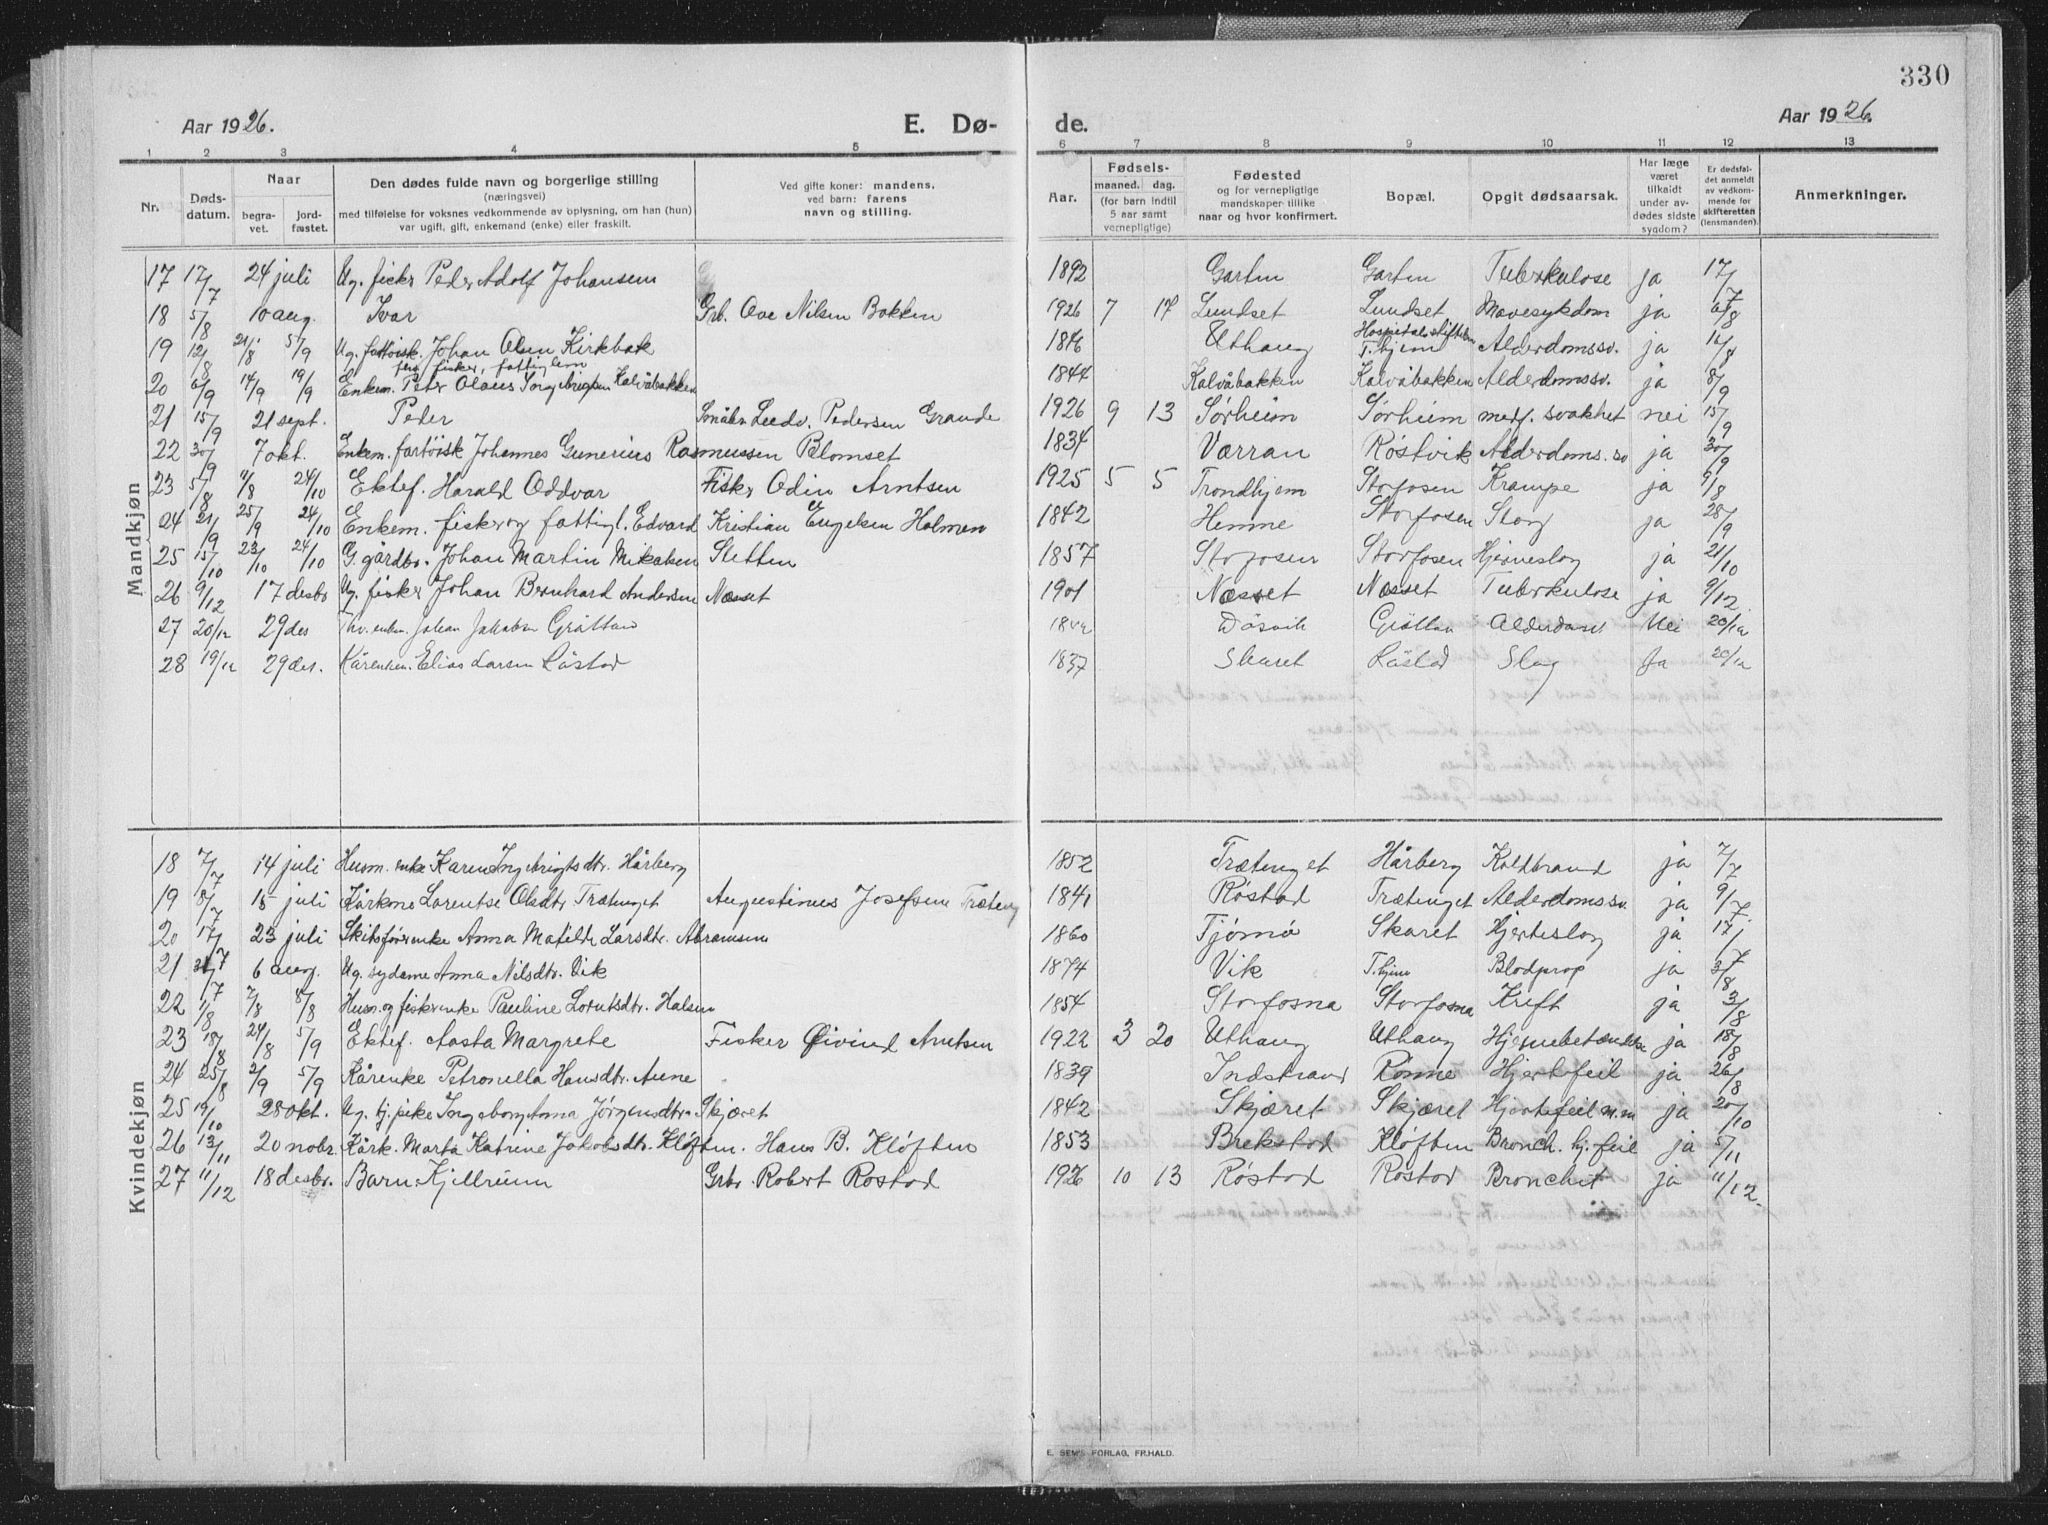 330
Aar 1926. E. Dø- de. Aar 1926.
1 2 3 4 5 6 7 8 9 10 11 12 13
Nr. Døds-datum. Naar begra-vet. jord-fæstet. Den dødes fulde navn og borgerlige stilling (næringsvei) med tilføielse for voksnes vedkommende av oplysning, om han (hun) var ugift, gift, enkemand (enke) eller fraskilt. Ved gifte koner: mandens. ved barn: farens navn og stilling. Aar. Fødsels- maaned. dag. (for barn indtil 5 aar samt vernepligtige) Fødested og for vernepligtige mandskaper tillike naar og hvor konfirmert. Bopæl. Opgit dødsaarsak. Har læge været tilkaldt under av-dødes sidste sygdom? Er dødsfal-det anmeldt av vedkom-mende for skifteretten (lensmanden). Anmerkninger.
Mandkjøn
17 17/7 24 juli Ug. fisker Peder Adolf Johansen 1892 Garten Garten Tuberkulose ja 17/7
18 5/8 10 aug. Ivar Grb. Ove Nilsen Bakken 1926 7 17 Lundset Lundset Mavesykdom ja 6/8
19 12/8 21/8 5/9 Ug. Johan Olsen Kirkbak Uthaug Hospitalsstiftelsen T.hjem Alderdomssv. ja
fisker, fattiglem
20 6/9 14/9 19/9 Enkem. Peter Olaus Ingebrigtsen Kalvåbakken 1844 Kalvåbakken Kalvåbakken Alderdomssv. ja 8/9
21 15/9 21 sept. Peder Småbr. Pedersen Grande 1926 9 13 Sørheim Sørheim medf. svakhet nei 15/9
22 30/9 7 okt. Enkem. Johannes Gunerius Rasmussen Blomset 1834 Værran Røstvik Alderdoms.sv ja 30/9
23 5/8 11/8 24/10 Ektef. Harald Oddvar Fisker Odin Arntsen 1925 5 5 Trondhjem Storfosen Krampe ja 9/8
24 21/9 25/9 24/10 Enkem. fisker og fattigl. Edvard Kristian Engelsen Holmen 1842 Hemne Storfosen Slag ja 28/9
25 15/10 23/10 24/10 G. gårdbr. Johan Martin Mikalsen Sletten 1857 Storfosen Storfosen Hjerneslag ja 21/10
26 9/12 17 desbr Ug. fisker Johan Bernhard Andersen Næsset 1901 Næsset Næsset Tuberkulose ja 9/12
27 20/12 29 des Johan Jakobsen Grøttan Døsvik Grøttan Nei 20/12
28 19/12 29 des. Kårenkem. Elias Larsen Røstad 1837 Skaret Røstad Slag Ja 20/12
Kvindekjøn
18 7/7 14 juli Husm. enke Karen Ingebrigtsdtr. Hårberg 1852 Trætenget Hårberg Koldbrand ja 7/7
19 8/7 15 juli Kårkone Lorentse Olsdtr Trætenget Augustinus Josefsen Træteng 1841 Røstad Trætenget Alderdomssv. ja 9/7
20 17/7 23 juli Skibsførerenke Anna Matilde Larsdtr. Abramsen 1860 Tjømø Skaret Hjerteslag ja 17/7
21 31/7 6 aug. Ug. sydame Anna Nilsdtr. Vik 1874 Vik T.hjem Blodprop ja 3/8
22 1/8 7/8 8/8 Husm. og fiskerenke Pauline Lorntsdtr. Halsen 1854 Storfosna Storfosna Kreft ja 3/8
23 18/8 24/8 5/9 Ektef. Aasta Margrete Fisker Øivind Arntsen 1922 3 20 Uthaug Uthaug Hjernebetændelse ja 18/8
24 25/8 2/9 5/9 Kårenke Petronella Hansdtr. Aune 1839 Indstrand Rønne Hjertefeil ja 26/8
25 19/10 28 okt. Ug. tj. pike Ingeborg Anna Jørgensdtr. Skjæret 1842 Skjæret Skjæret Hjertefeil m.m ja 20/10
26 13/11 20 nobr. Kårk. Marta Katrine Jakobsdtr. Kløften. Hans B. Kløften 1853 Brekstad Kløften Bronch. hj. feil ja 5/11
27 11/12 18 desbr. Barn Kjellrunn Grbr. Robert Røstad 1926 10 13 Røstad Røstad Bronchit ja 11/12
E. SEM'S FORLAG, FR.HALD.